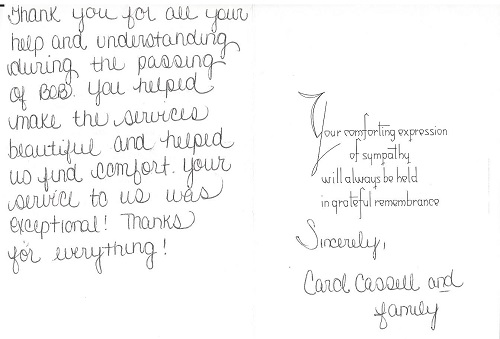 Thank you for all your
help and understanding
during the passing
of BOB. You helped
make the services
beautiful and helped
us find comfort. Your
service to us was
exceptional! Thanks
for everything!
Your comforting expression
of sympathy
will always be held
in grateful remembrance
Sincerely,
Carol Cassell and
family